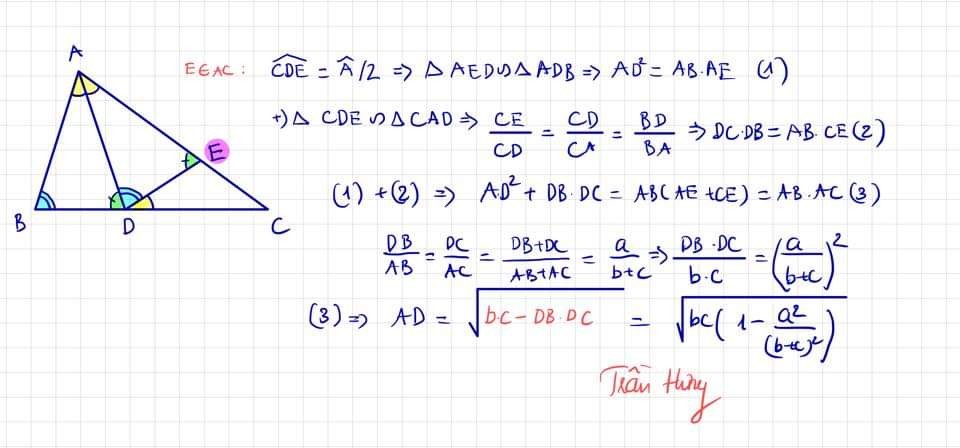 A
B
D
C
E
E ∈ AC : \widehat{CDE} = \widehat{A}/2 => Δ AED ∽ Δ ADB => AD² = AB.AE (1)
+) Δ CDE ∽ Δ CAD => CE/CD = CD/CA = BD/BA => DC.DB = AB.CE (2)
(1) + (2) => AD² + DB.DC = AB(AE + CE) = AB.AC (3)
DB/AB = DC/AC = (DB+DC)/(AB+AC) = a/(b+c) => DB.DC/b.c = (a/(b+c))²
(3) => AD = √(b.c − DB.DC) = √(bc(1 − a²/(b+c)²))
Trần Hưng